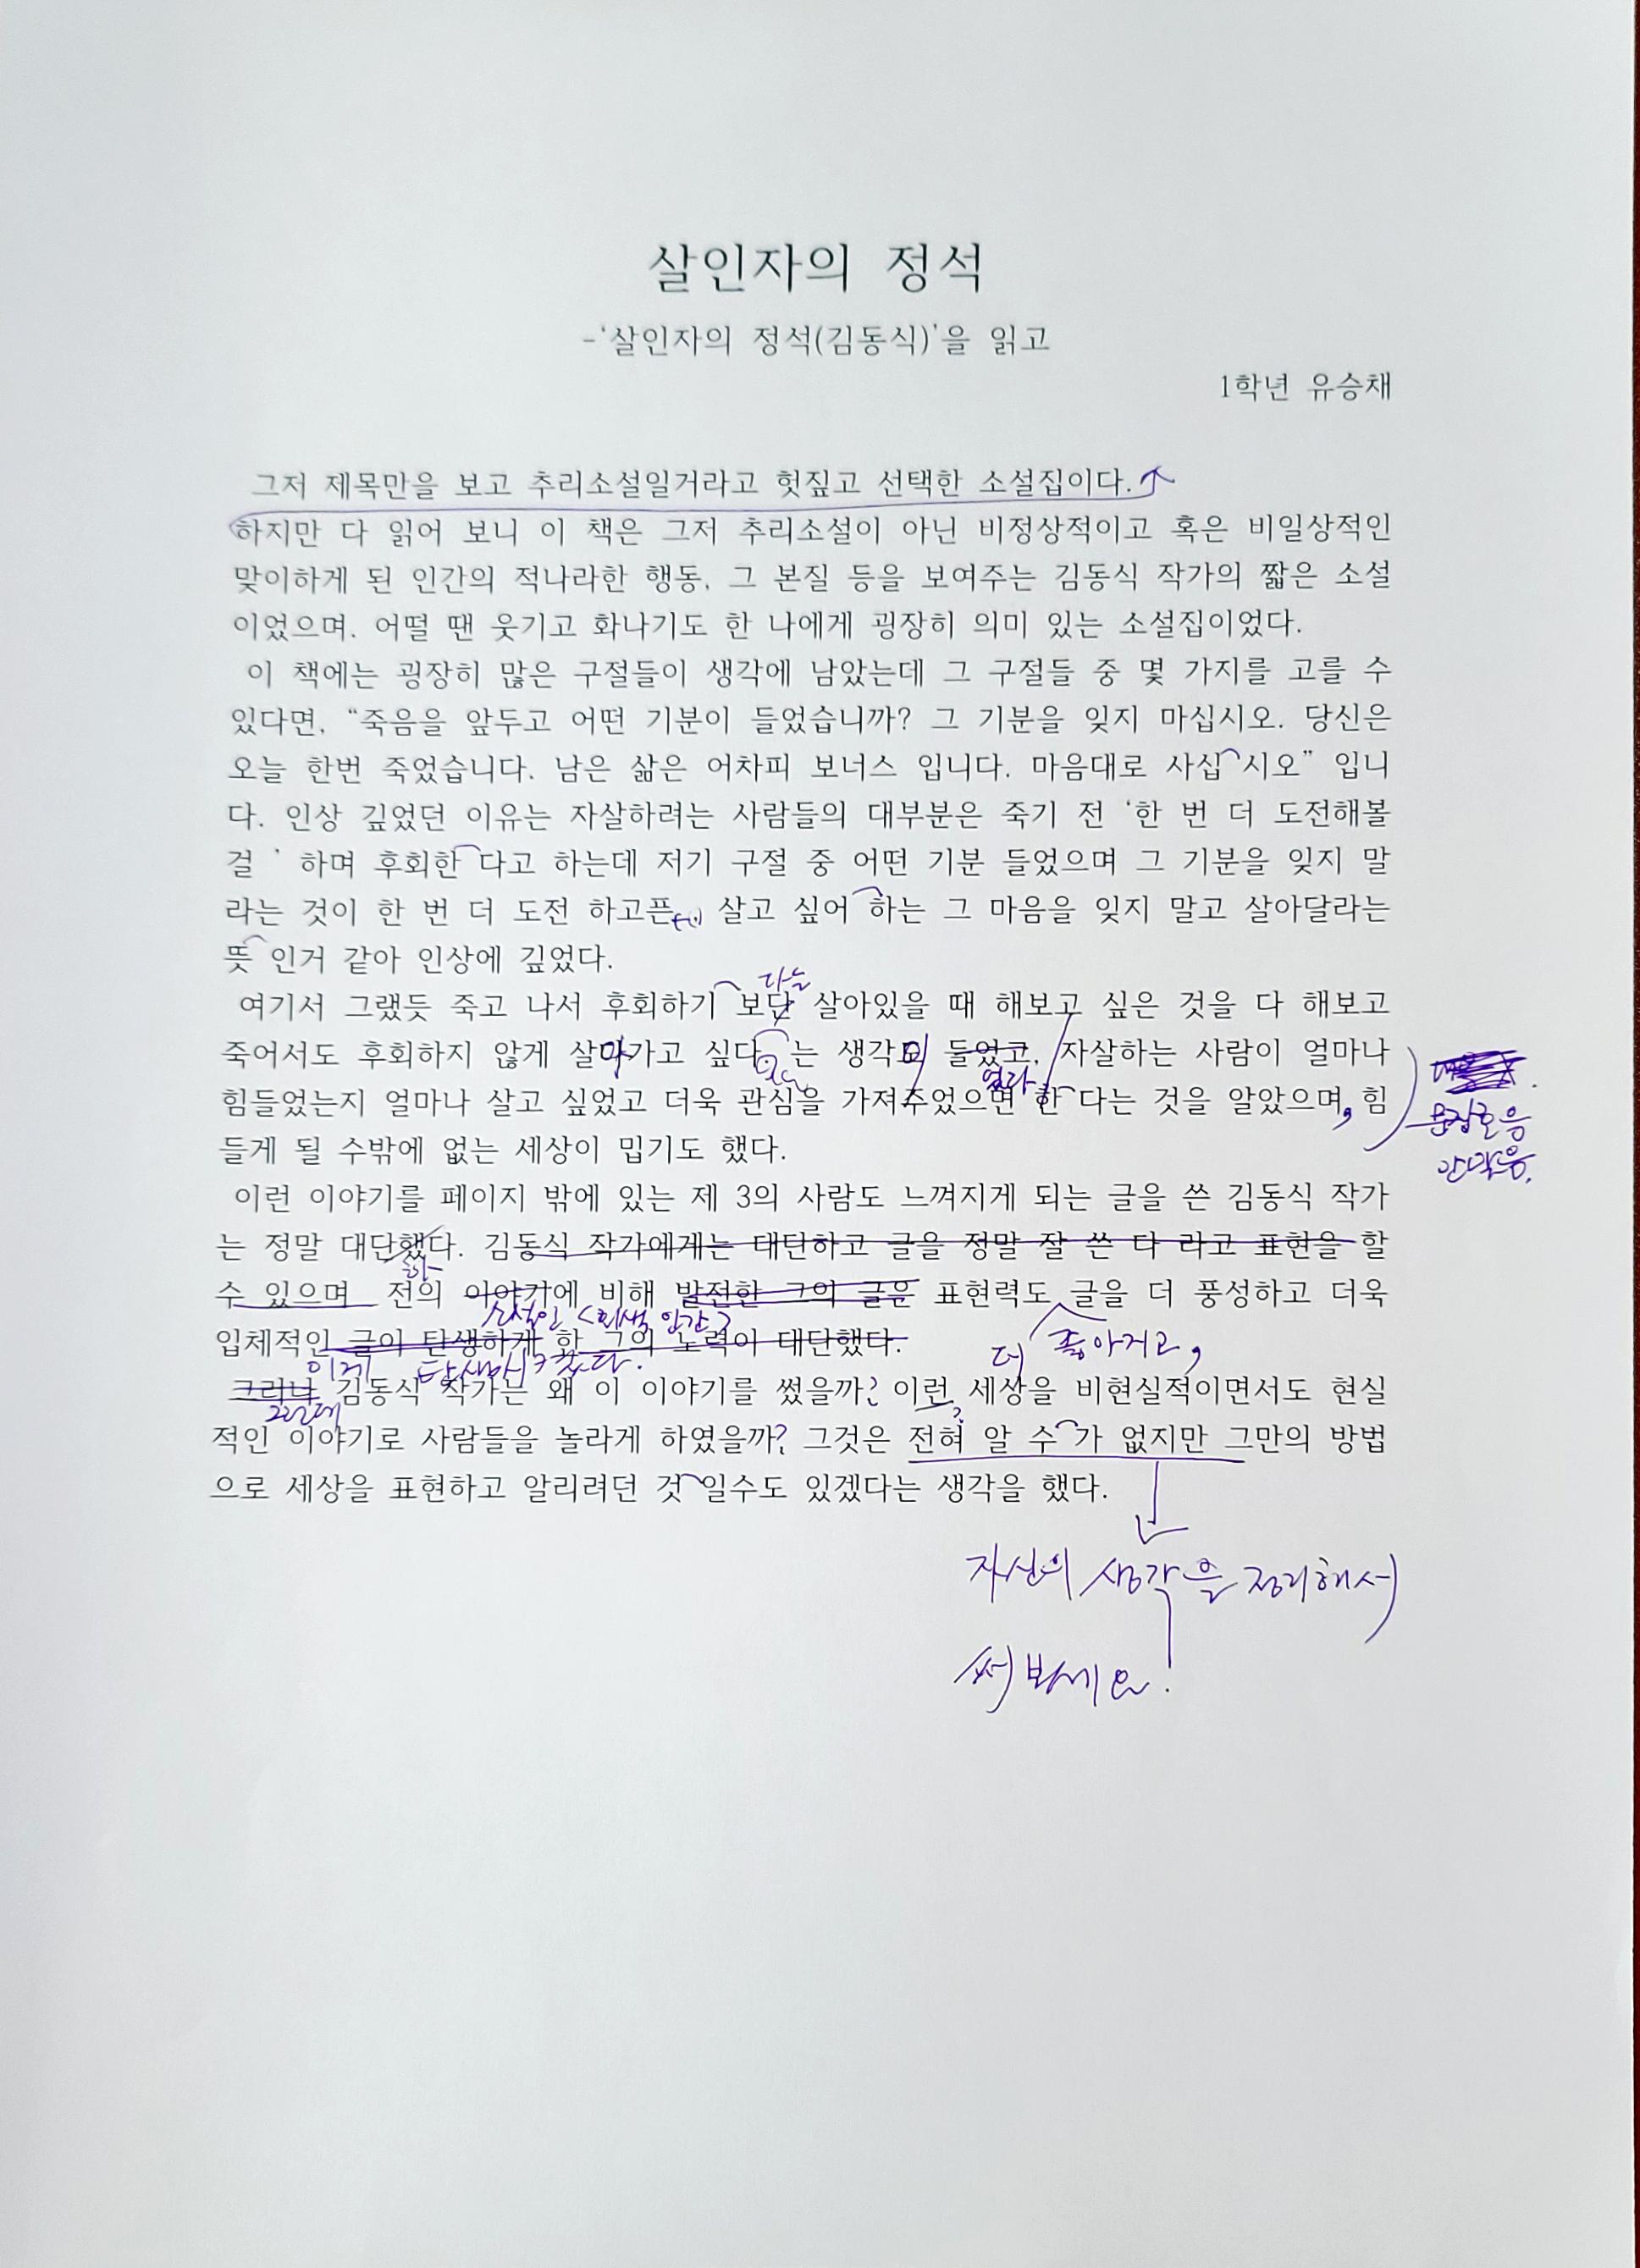 살인자의 정석
-'살인자의 정석(김동식)'을 읽고
1학년 유승채
그저 제목만을 보고 추리소설일거라고 헛짚고 선택한 소설집이다.
하지만 다 읽어 보니 이 책은 그저 추리소설이 아닌 비정상적이고 혹은 비일상적인
맞이하게 된 인간의 적나라한 행동, 그 본질 등을 보여주는 김동식 작가의 짧은 소설
이었으며. 어떨 땐 웃기고 화나기도 한 나에게 굉장히 의미 있는 소설집이었다.
이 책에는 굉장히 많은 구절들이 생각에 남았는데 그 구절들 중 몇 가지를 고를 수
있다면, “죽음을 앞두고 어떤 기분이 들었습니까? 그 기분을 잊지 마십시오. 당신은
오늘 한번 죽었습니다. 남은 삶은 어차피 보너스 입니다. 마음대로 사십 시오” 입니
다. 인상 깊었던 이유는 자살하려는 사람들의 대부분은 죽기 전 ‘한 번 더 도전해볼
걸 ’ 하며 후회한 다고 하는데 저기 구절 중 어떤 기분 들었으며 그 기분을 잊지 말
라는 것이 한 번 더 도전 하고픈, 살고 싶어 하는 그 마음을 잊지 말고 살아달라는
뜻 인거 같아 인상에 깊었다.
다는
여기서 그랬듯 죽고 나서 후회하기 보단 살아있을 때 해보고 싶은 것을 다 해보고
죽어서도 후회하지 않게 살아가고 싶다 는 생각이 들었고, 자살하는 사람이 얼마나
힘들었는지 얼마나 살고 싶었고 더욱 관심을 가져주었으면 한 다는 것을 알았으며, 힘
문장호응
안맞음.
들게 될 수밖에 없는 세상이 밉기도 했다.
이런 이야기를 페이지 밖에 있는 제 3의 사람도 느껴지게 되는 글을 쓴 김동식 작가
는 정말 대단했다. 김동식 작가에게는 대단하고 글을 정말 잘 쓴 다 라고 표현을 할
하
수 있으며 전의 이야기에 비해 발전한 그의 글은 표현력도 글을 더 풍성하고 더욱
소설인 <회색 인간>
입체적인 글이 탄생하게 한 그의 노력이 대단했다.
더 좋아지고,
이게 탄생시켰다.
그러나 김동식 작가는 왜 이 이야기를 썼을까? 이런 세상을 비현실적이면서도 현실
그런데
적인 이야기로 사람들을 놀라게 하였을까? 그것은 전혀 알 수 가 없지만 그만의 방법
으로 세상을 표현하고 알리려던 것 일수도 있겠다는 생각을 했다.
자신의 생각을 정리해서
써보세요!